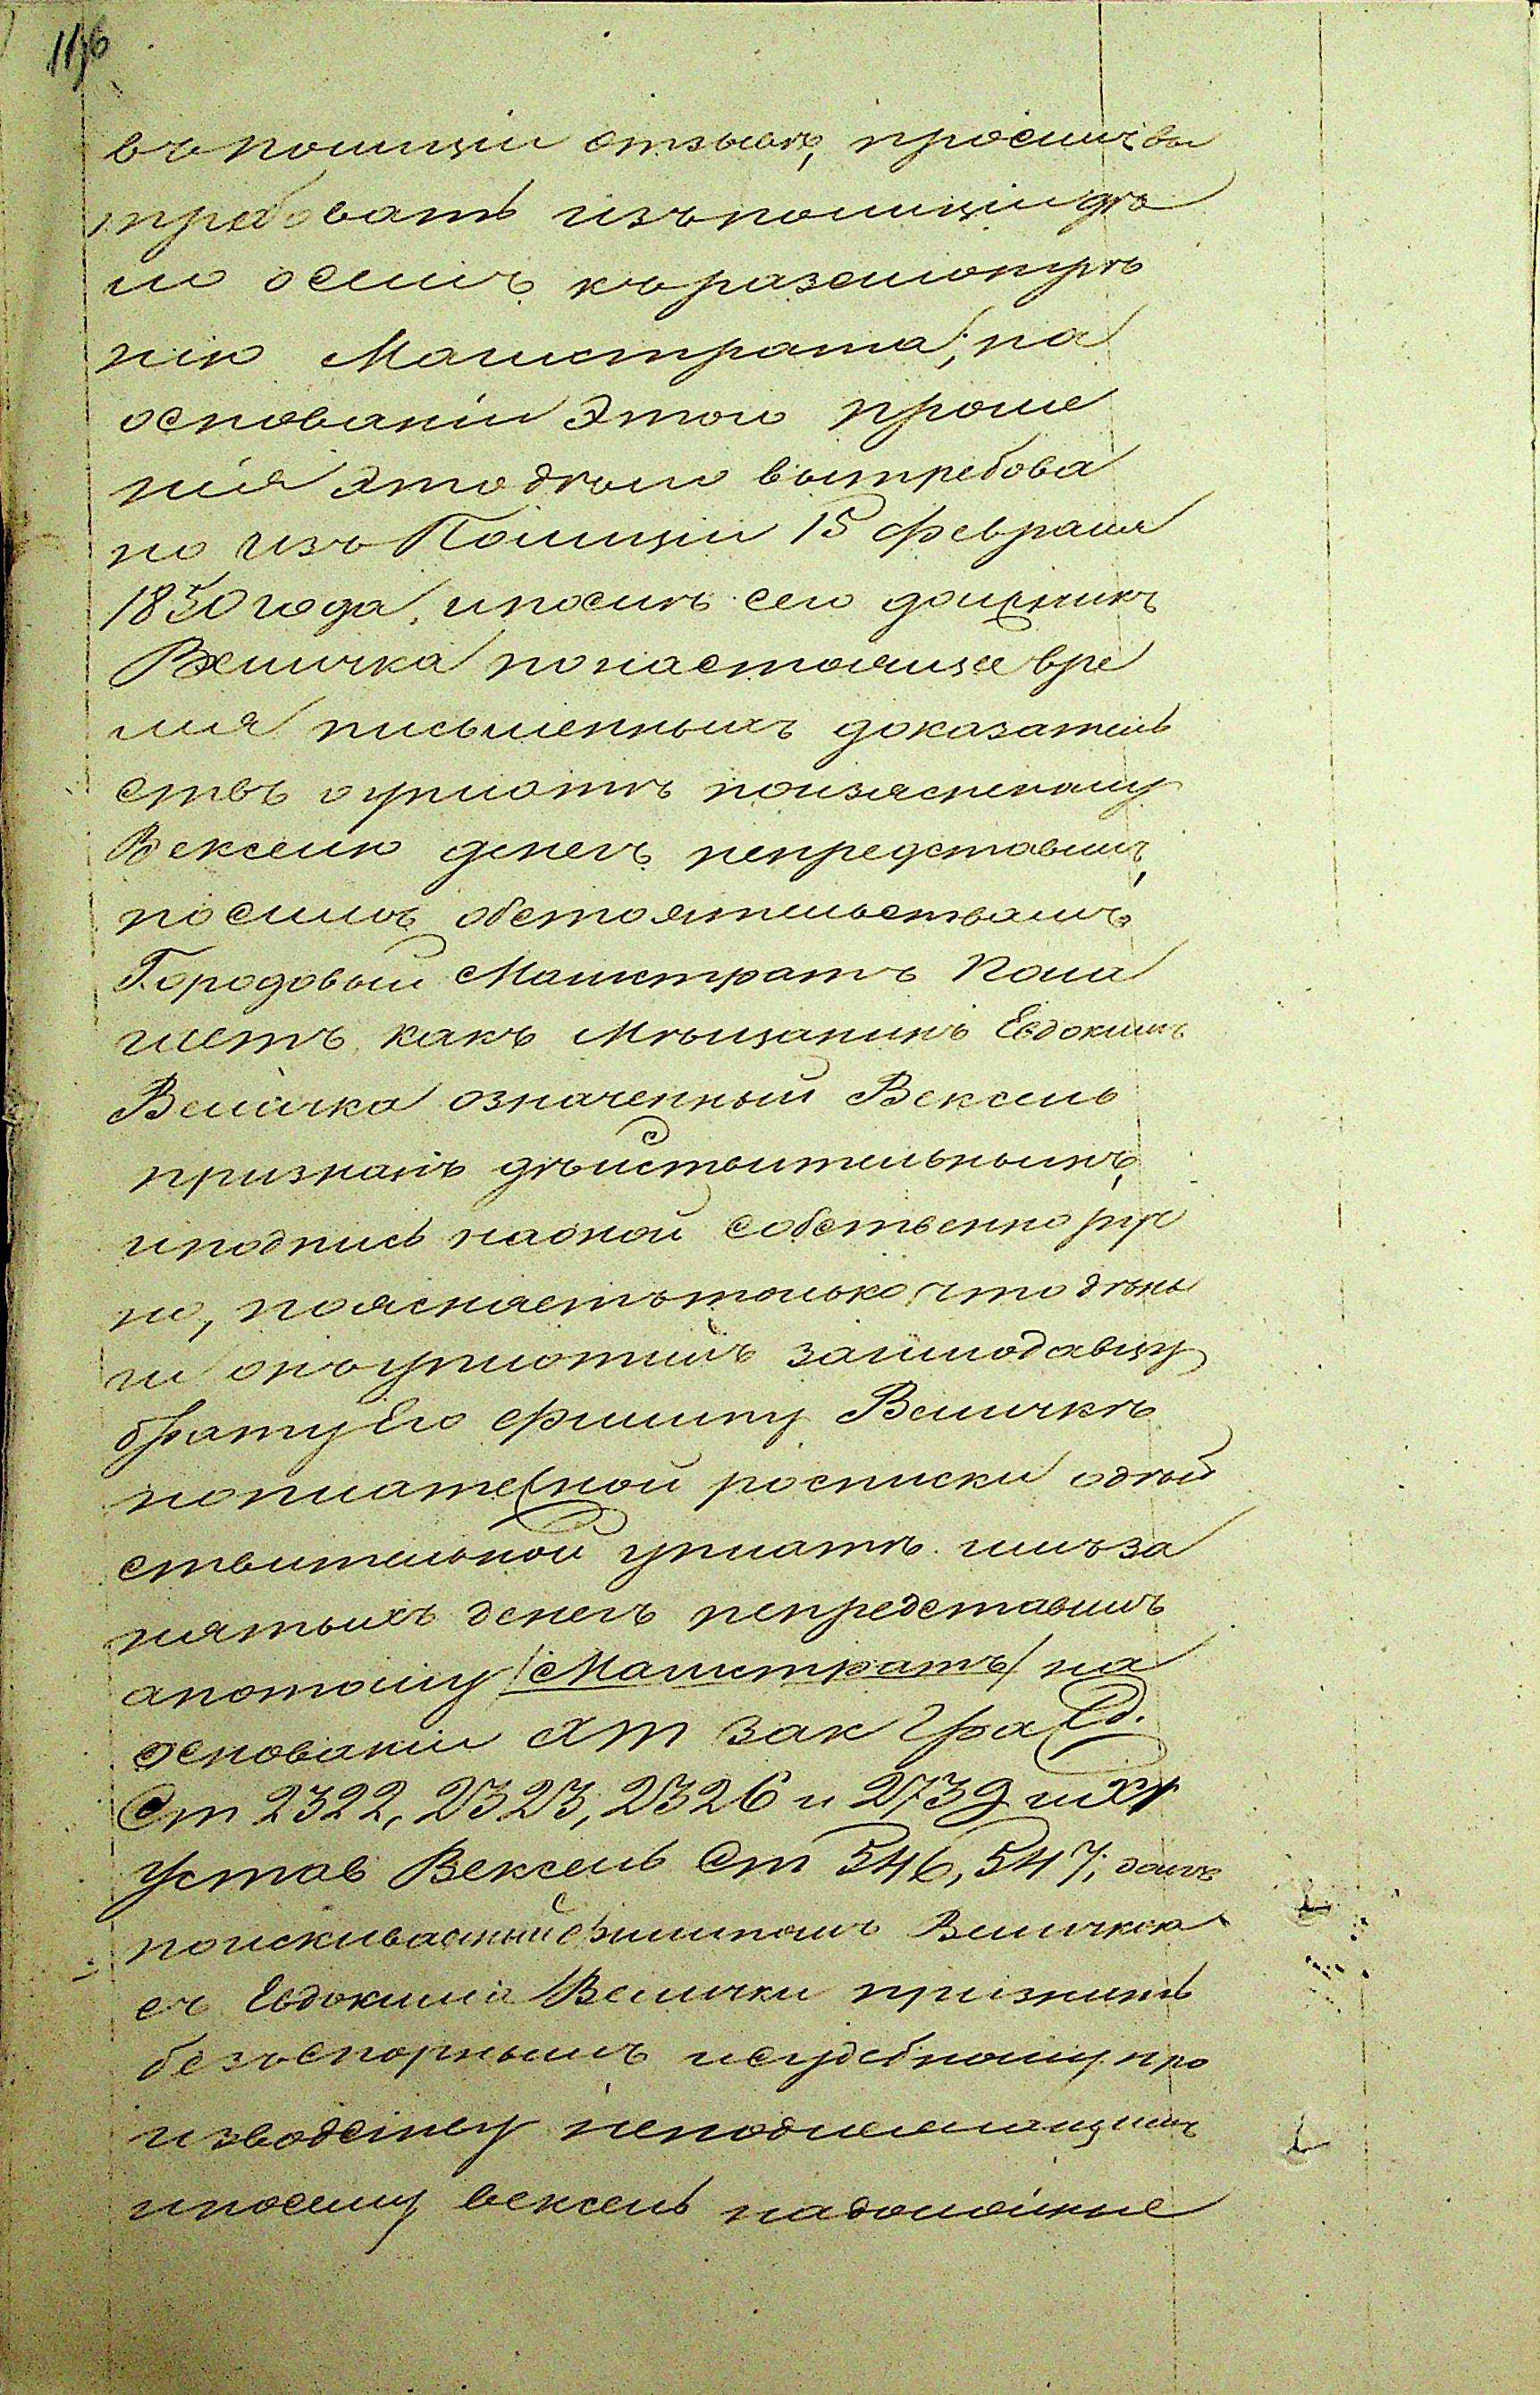 въ полиціи отзывѣ, проситъ вы
требовать изъ полиціи дѣ
ло осемъ къ разсмотрѣ
нію Магистрата; на
основаніи этого проше
нія это дѣло вытребова
но изъ Полиціи 15 февраля
1850 года, и после сего должникъ
Величка по настоящее вре
мя письменныхъ доказатель
ствъ о уплатѣ по изясненому
Векселю денегъ не представилъ,
по симъ обстоятельствамъ
Городовый Магистратъ Пола
гаетъ какъ Мѣщанинъ Евдокимъ
Величка означенный Вексель
призналъ дѣйствительнымъ,
и подпись на оной собственно руч
но, поясняетъ только что день
ги онъ уплотилъ заимодавцу
брату Его Филипу Величкѣ
но платежной росписки о дѣй
ствительной уплатѣ имъ за
нятыхъ денегъ не представилъ
а потому /Магистратъ/ на
основаніи Х т зак Гражд.
Ст 2322, 2323, 2326 и 2739 и XI
устав Вексель Ст 546, 547;
поискиваемый Филипомъ Величкою
съ Евдокима Велички признать
безъспорнымъ и судебному про
изводству неподлежащимъ
и посему вексель на должные